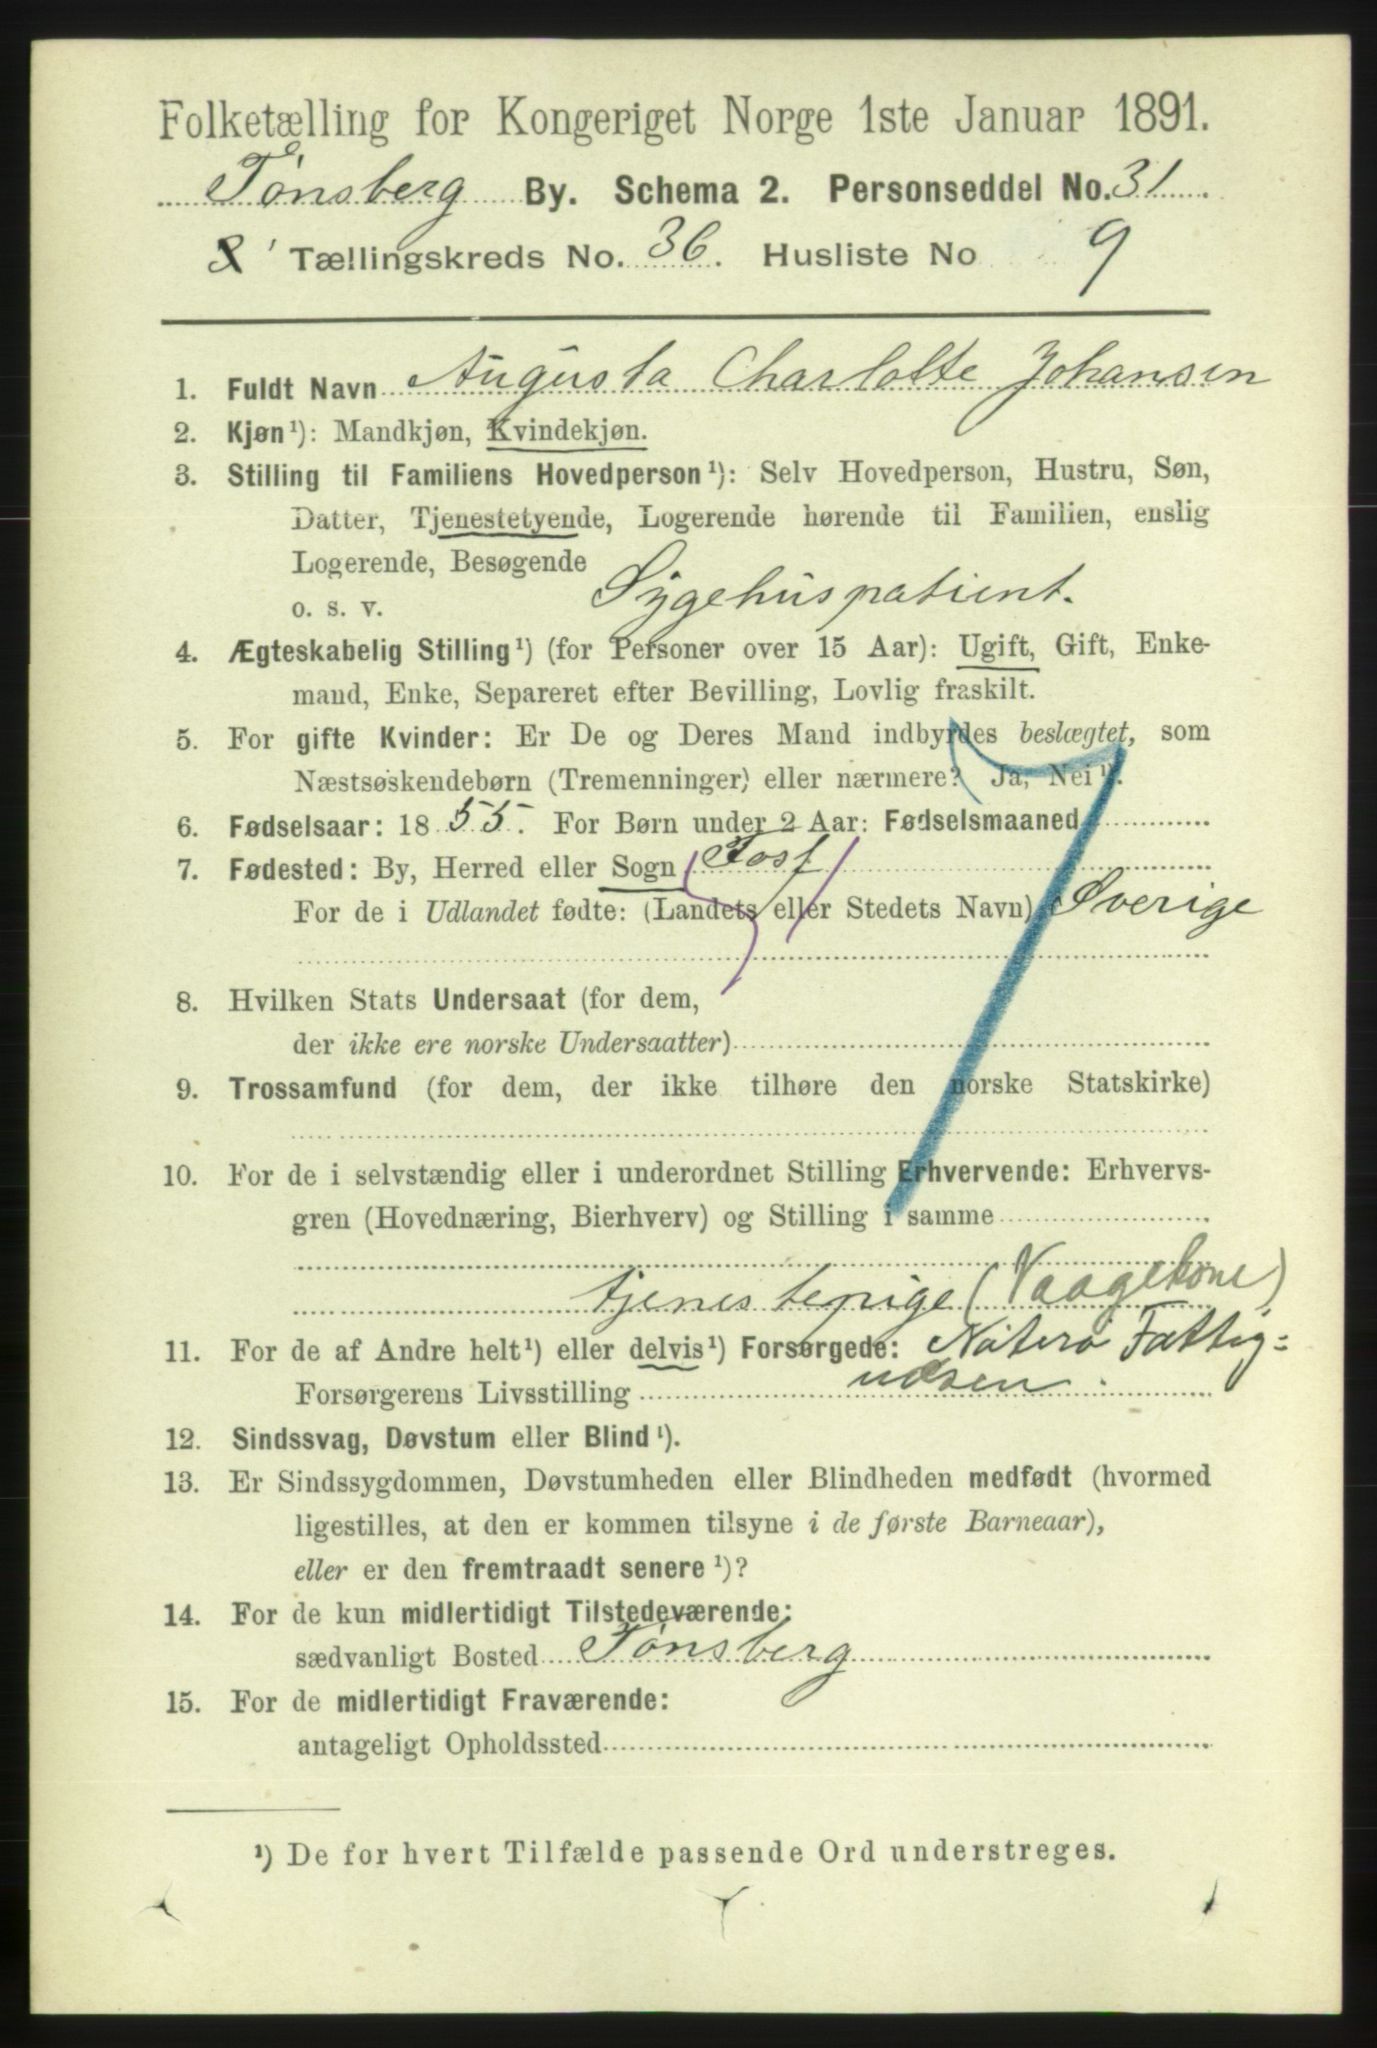 Folketælling for Kongeriget Norge 1ste Januar 1891.
Tønsberg By. Schema 2. Personseddel No. 31
Tællingskreds No. 36. Husliste No 9
1. Fuldt Navn Augusta Charlotte Johansen
2. Kjøn¹): Mandkjøn, Kvindekjøn.
3. Stilling til Familiens Hovedperson¹): Selv Hovedperson, Hustru, Søn,
Datter, Tjenestetyende, Logerende hørende til Familien, enslig
Logerende, Besøgende
o. s. v. Sygehuspatient.
4. Ægteskabelig Stilling¹) (for Personer over 15 Aar): Ugift, Gift, Enke-
mand, Enke, Separeret efter Bevilling, Lovlig fraskilt.
5. For gifte Kvinder: Er De og Deres Mand indbyrdes beslægtet, som
Næstsøskendebørn (Tremenninger) eller nærmere? Ja, Nei¹).
6. Fødselsaar: 1855. For Børn under 2 Aar: Fødselsmaaned
7. Fødested: By, Herred eller Sogn Foss
For de i Udlandet fødte: (Landets eller Stedets Navn) Sverige
8. Hvilken Stats Undersaat (for dem,
der ikke ere norske Undersaatter)
9. Trossamfund (for dem, der ikke tilhøre den norske Statskirke)
10. For de i selvstændig eller i underordnet Stilling Erhvervende: Erhvervs-
gren (Hovednæring, Bierhverv) og Stilling i samme
tjenestepige (Vaagekone)
11. For de af Andre helt¹) eller delvis¹) Forsørgede: Nøterø Fattig-
Forsørgerens Livsstilling
12. Sindssvag, Døvstum eller Blind¹).
13. Er Sindssygdommen, Døvstumheden eller Blindheden medfødt (hvormed
ligestilles, at den er kommen tilsyne i de første Barneaar),
eller er den fremtraadt senere¹)?
14. For de kun midlertidigt Tilstedeværende:
sædvanligt Bosted Tønsberg
15. For de midlertidigt Fraværende:
antageligt Opholdssted
¹) De for hvert Tilfælde passende Ord understreges.